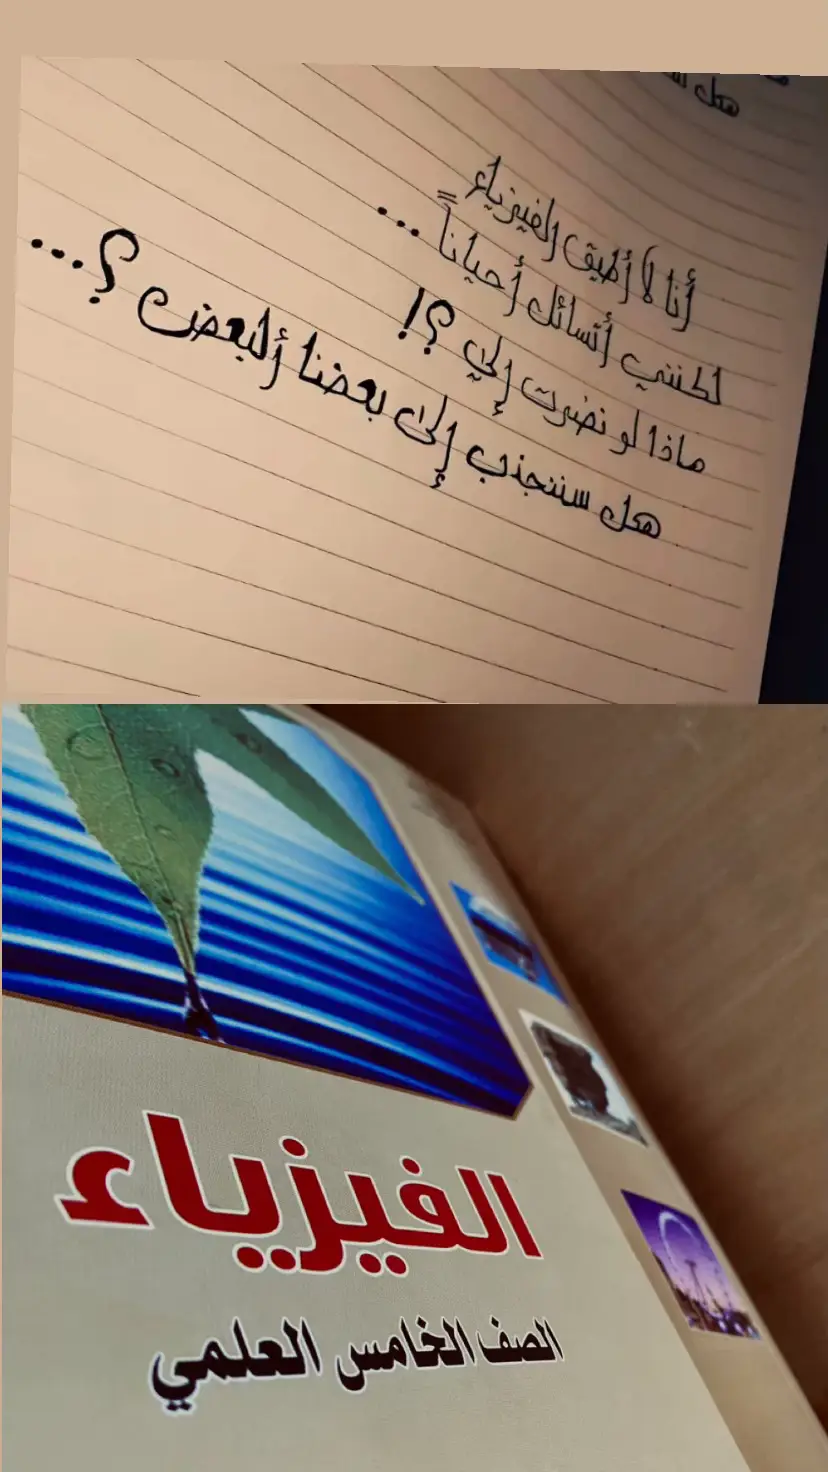 هل
أنا لا أطيق الفيزياء
لكنني أتسائل أحياناً ...
ماذا لو نضرت إلي ؟!
هل سننجذب إلى بعضنا ألبعض ؟...
الفيزياء
الصف الخامس العلمي